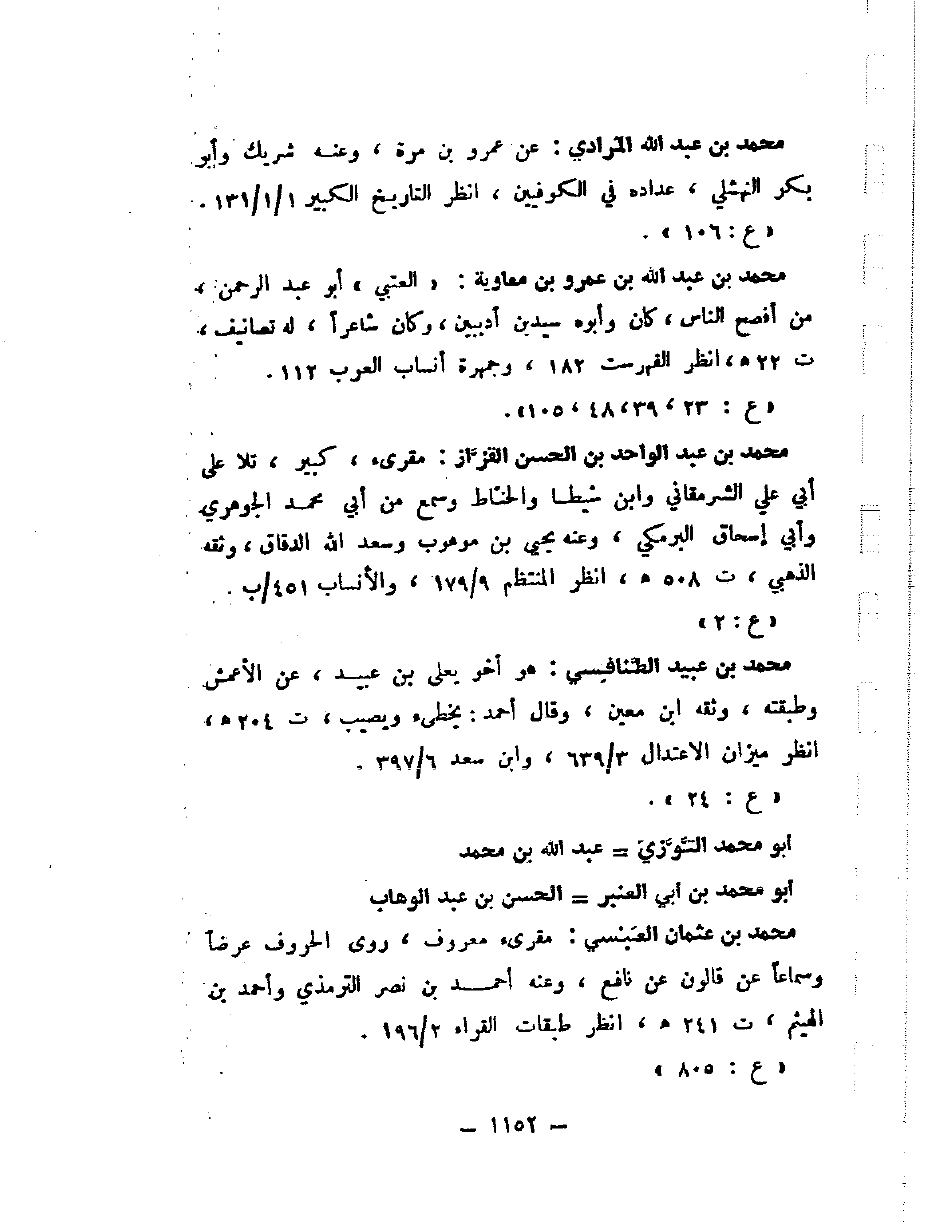 محمد بن عبد الله المرادي : عن عمرو بن مرة ، وعنه شريك وأبو
بكر النهشلي ، عداده في الكوفيين ، انظر التاريخ الكبير ١٣١/١/١ .
« ع : ١٠٦ » .
محمد بن عبد الله بن عمرو بن معاوية : « العتبي » أبو عبد الرحمن ،
من أفصح الناس ، كان وأبوه سيدين أديبين ، وكان شاعراً ، له تصانيف ،
ت ٢٢ ه ، انظر الفهرست ١٨٢ ، وجمهرة أنساب العرب ١١٢ .
« ع : ٢٣ ، ٣٩ ، ٤٨ ، ١٠٥ » .
محمد بن عبد الواحد بن الحسن القزَّاز : مقرىء ، كبير ، تلا على
أبي علي الشرمقاني وابن شيطا والخيَّاط وسمع من أبي محمد الجوهري
وأبي إسحاق البرمكي ، وعنه يحيي بن موهوب وسعد الله الدقاق ، وثقه
الذهبي ، ت ٥٠٨ ه ، انظر المنتظم ١٧٩/٩ ، والأنساب ٤٥١/ب .
« ع : ٢ »
محمد بن عبيد الطَّنافِسي : هو أخو يعلى بن عبيد ، عن الأعمش
وطبقته ، وثقه ابن معين ، وقال أحمد : يخطىء ويصيب ، ت ٢٠٤ ه ،
انظر ميزان الاعتدال ٦٣٩/٣ ، وابن سعد ٣٩٧/٦ .
« ع : ٢٤ » .
أبو محمد التَّوَّزيّ = عبد الله بن محمد
أبو محمد بن أبي العنبر = الحسن بن عبد الوهاب
محمد بن عثمان العَبْسي : مقرىء معروف ، روى الحروف عرضاً
وسماعاً عن قالون عن نافع ، وعنه أحمد بن نصر الترمذي وأحمد بن
الهيثم ، ت ٢٤١ ه ، انظر طبقات القراء ١٩٦/٢ .
« ع : ٨٠٥ »
– ١١٥٢ –